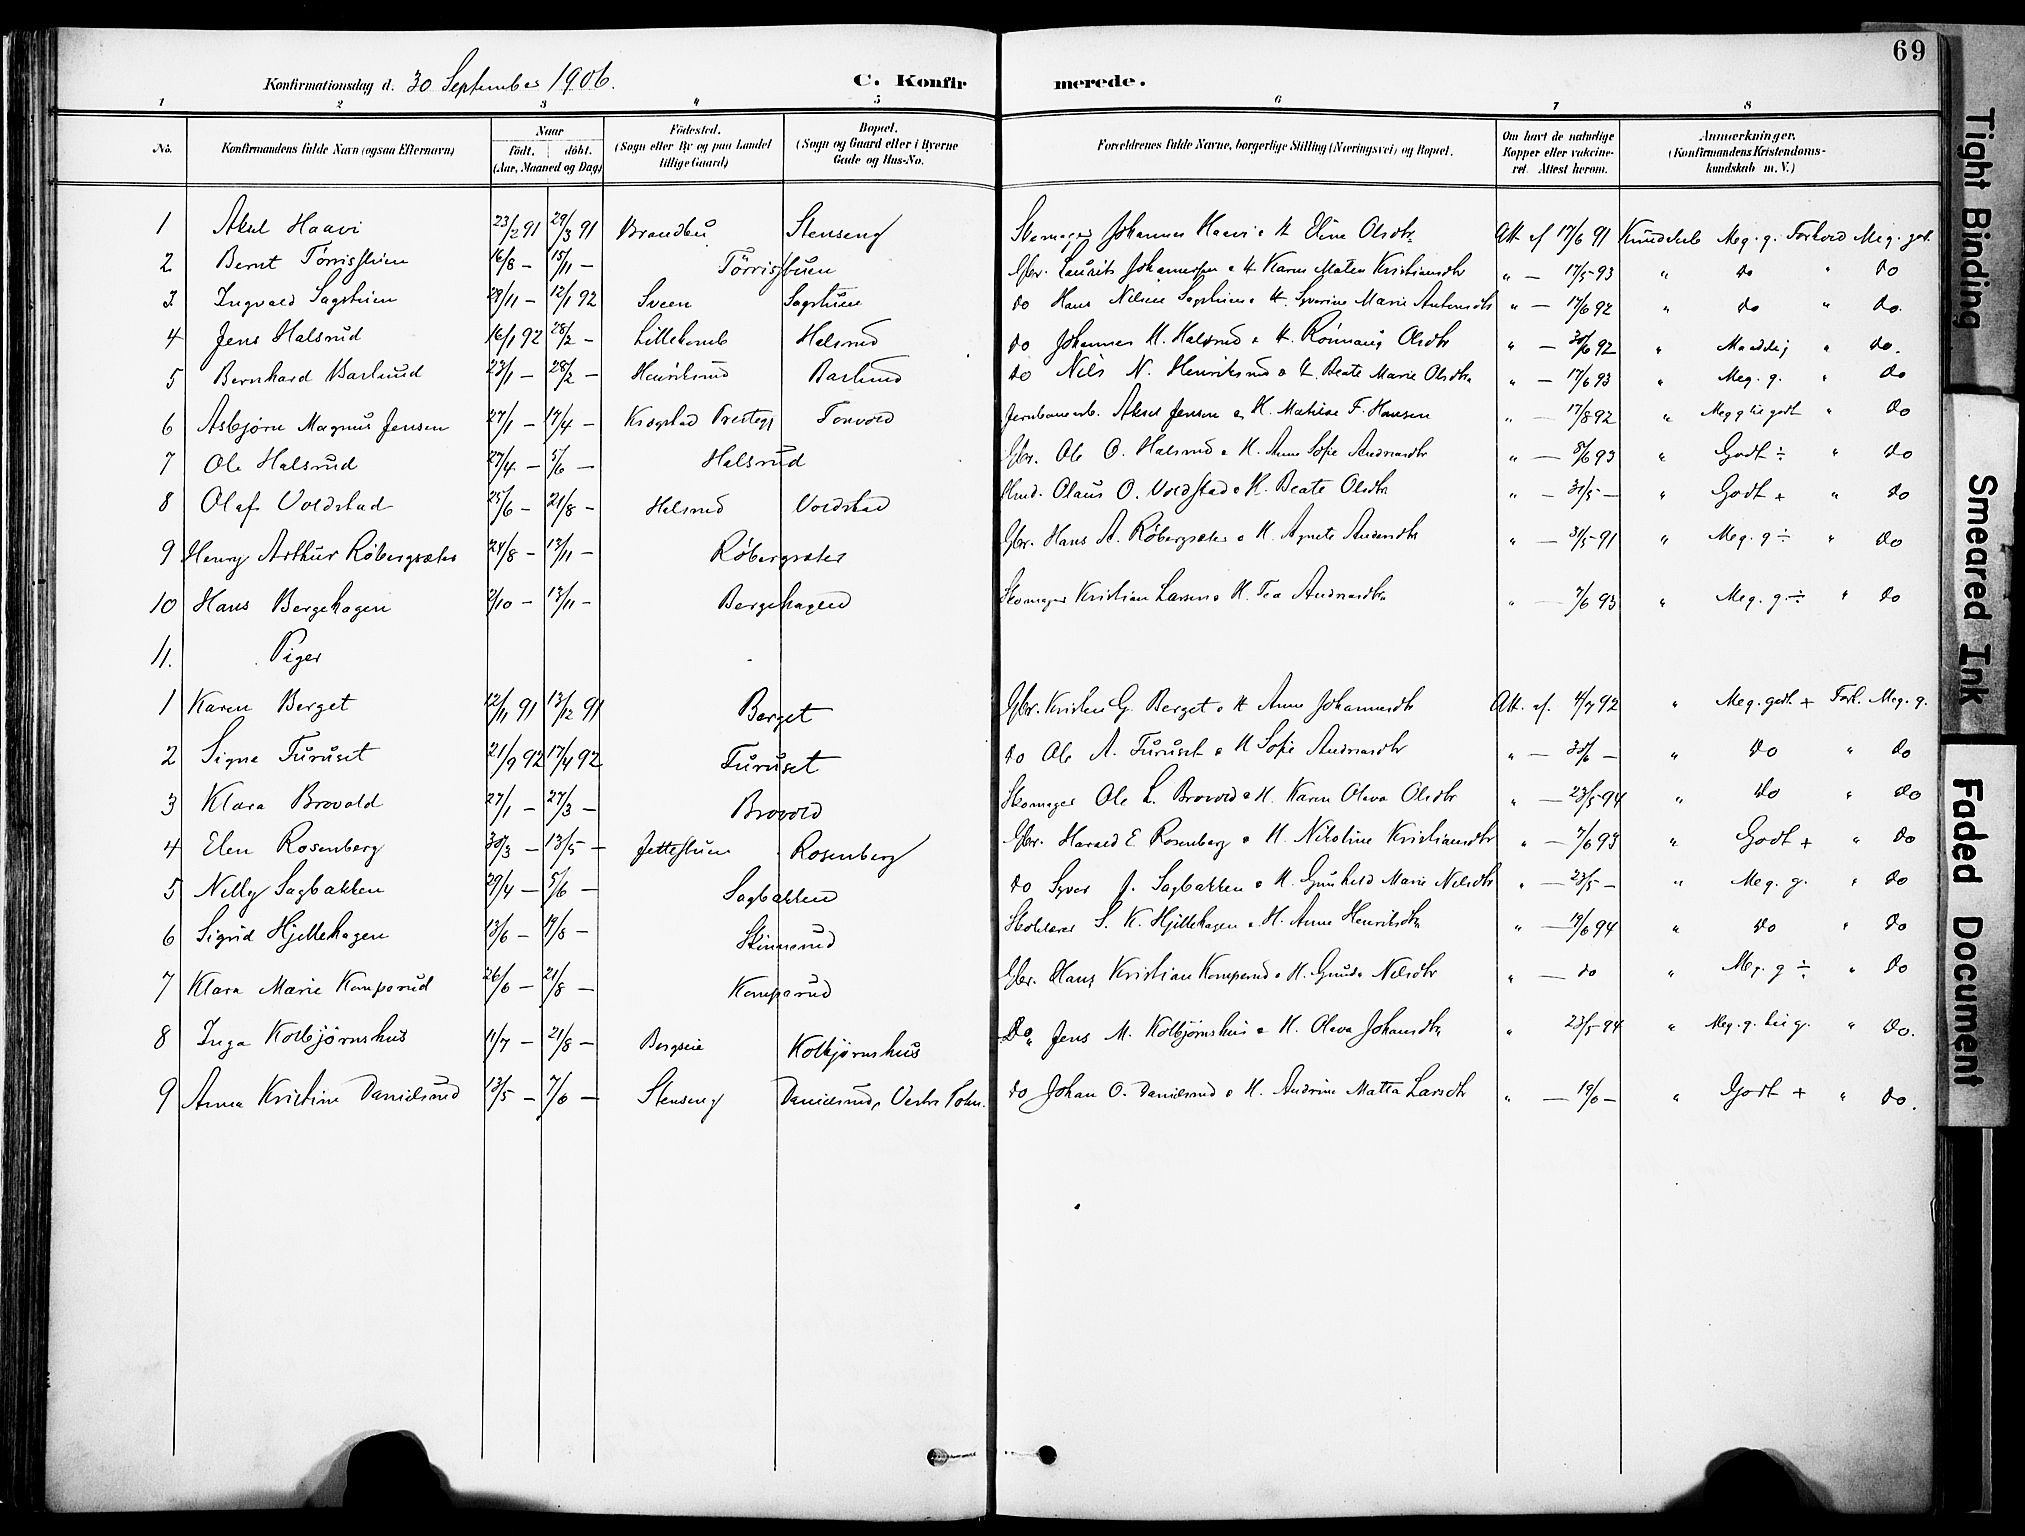 69
Konfirmationsdag d. 30 September 1906. C. Konfirmerede.
1 2 3 4 5 6 7 8
No. Konfirmandens fulde Navn (ogsaa Efternavn) Naar født. døbt. (Aar, Maaned og Dag) Fødested. (Sogn eller By og paa Landet tillige Gaard) Bopæl. (Sogn og Gaard eller i Byerne Gade og Hus-No. Forældrenes fulde Navne, borgerlige Stilling (Næringsvei) og Bopæl. Om havt de naturlige Kopper eller vakcineret. Attest herom. Anmærkninger. (Konfirmandens Kristendomskundskab m. V.)
1 Aksel Haavi 23/2 91 29/3 91 Brandbu Stenseng Skomager Johannes Haavi o H. Eline Olsdtr Att. af 17/6 91 Kundskab Meg. g. Forhold Meg. godt.
2 Bernt Tørrisstuen 16/8 – 15/11 – Tørrisstuen Gbr. Laurits Johannessen o H. Karen Matea Kristiansdtr " – 17/5 93 " do " do
3 Ingvald Sagstuen 28/11 – 12/1 92 Sveen Sagstuen do Hans Nilsen Sagstuen o H. Syverine Marie Antonsdtr " – 17/6 92 " do " do.
4 Jens Halsrud 16/1 92 28/2 – Lillekomb Halsrud do Johannes H. Halsrud o H. Rønnaug Olsdtr " – 30/6 92 " Maadelig " do.
5 Bernhard Barlund 23/1 – 28/2 – Henriksrud Barlund do Nils N. Henriksrud o H. Beate Marie Olsdtr " – 17/6 93 " Meg. g. " do
6 Asbjørn Magnus Jensen 27/1 – 17/4 – Krogstad Prestegj Torvold Jernbanearb. Aksel Jensen o H. Matilde F. Hansen " – 17/8 92 " Meg g til godt " do
7 Ole Halsrud 27/4 – 5/6 – Halsrud Gbr. Ole O. Halsrud o H. Anne Sofie Andreasdtr " – 8/6 93 " Godt ÷ " do
8 Olaf Voldstad 25/6 – 21/8 – Halsrud Voldstad Olaus O. Voldstad o H. Beate Olsdtr " – 31/5 – " Godt + " do
9 Henry Arthur Røbergsæter 24/8 – 13/11 – Røbergsæter Gbr. Hans A. Røbergsæter o H. Agnete Andersdtr " – 31/5 91 " Meg. g ÷ " do
10 Hans Bergehagen 2/10 – 13/11 – Bergehagen Skomager Kristian Larsen o H. Tea Andreasdtr " – 7/6 93 " Meg. g. ÷ " do
11. Piger
1 Karen Berget 12/11 91 13/12 91 Berget Gbr. Kristen G. Berget o H Anne Johannesdtr Att. af. 4/7 92 " Meg. godt + Forh. Meg. g.
2 Signe Furuset 21/9 92 17/4 92 Furuset do Ole A. Furuset o H Sofie Andreasdtr " – 30/6 – " do " do
3 Klara Brovold 27/1 – 27/3 – Brovold Skomager Ole L. Brovold o H. Karen Olava Olsdtr " – 23/5 94 " do " do
4 Elen Rosenberg 30/3 – 13/5 – Jettestuen Rosenberg Gbr. Harald E. Rosenberg o H. Nikoline Kristiansdtr " – 7/6 93 " Godt + " do
5 Nelly Sagbakken 29/4 – 5/6 – Sagbakken do Syver J. Sagbakken o H. Gunhild Marie Nilsdtr " – 23/5 – " Meg. g. " do
6 Sigrid Hjellehagen 13/6 – 17/8 – Skinnerud S. K. Hjellehagen o H. Anne Henriksdtr " – 19/6 94 " do " do
7 Klara Marie Komperud 26/6 – 21/8 – Komperud Gbr. Hans Kristian Komperud o H. Gunda Nilsdtr " – do " Meg. g ÷ " do
8 Inga Kolbjørnshus 11/7 – 21/8 – Bergseie Kolbjørnshus Do " Jens M. Kolbjørnshus o H. Olava Johansdtr " 23/5 94 " Meg. g. til g. " do.
9 Anna Kristine Danielsrud 13/5 – 7/6 – Stenseng Danielsrud, Vestre Toten. do Johan O. Danielsrud o H. Andrine Mattea Larsdtr " – 19/6 – " Godt + " do.
Tight Binding
Smeared Ink
Faded Document